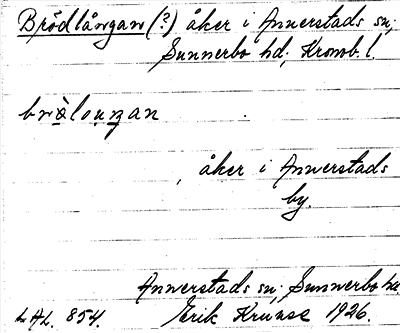 Brödlångan (?) åker i Annerstads sn;
Sunnerbo hd; Kronob. l.
brö̀lou̯ŋan
, åker i Annerstads
by.
Annerstads sn. Sunnerbo hd
LAL. 854. Erik Krunse 1926.